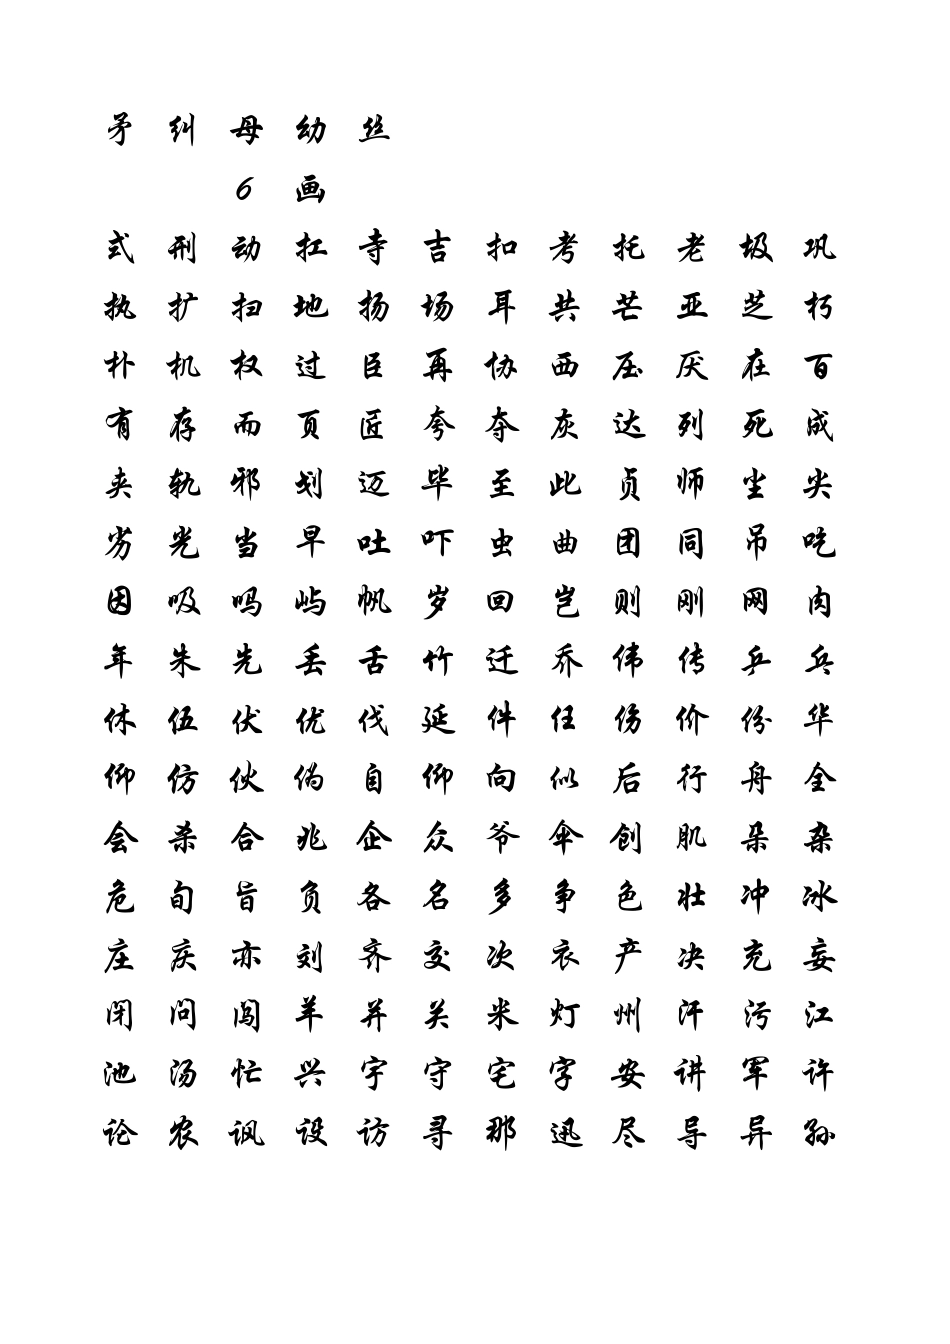 矛 纠 母 幼 丝
6 画
式 刑 动 扛 寺 吉 扣 考 托 老 圾 巩
执 扩 扫 地 扬 场 耳 共 芒 亚 芝 朽
朴 机 权 过 臣 再 协 西 压 厌 在 百
有 存 而 页 匠 夸 夺 灰 达 列 死 成
夹 轨 邪 划 迈 毕 至 此 贞 师 尘 尖
劣 光 当 早 吐 吓 虫 曲 团 同 吊 吃
因 吸 吗 屿 帆 岁 回 岂 则 刚 网 肉
年 朱 先 丢 舌 竹 迁 乔 伟 传 乒 乓
休 伍 伏 优 伐 延 件 任 伤 价 份 华
仰 仿 伙 伪 自 仰 向 似 后 行 舟 全
会 杀 合 兆 企 众 爷 伞 创 肌 朵 杂
危 旬 旨 负 各 名 多 争 色 壮 冲 冰
庄 庆 亦 刘 齐 交 次 衣 产 决 充 妄
闭 问 闯 羊 并 关 米 灯 州 汗 污 江
池 汤 忙 兴 宇 守 宅 字 安 讲 军 许
论 农 讽 设 访 寻 那 迅 尽 导 异 孙